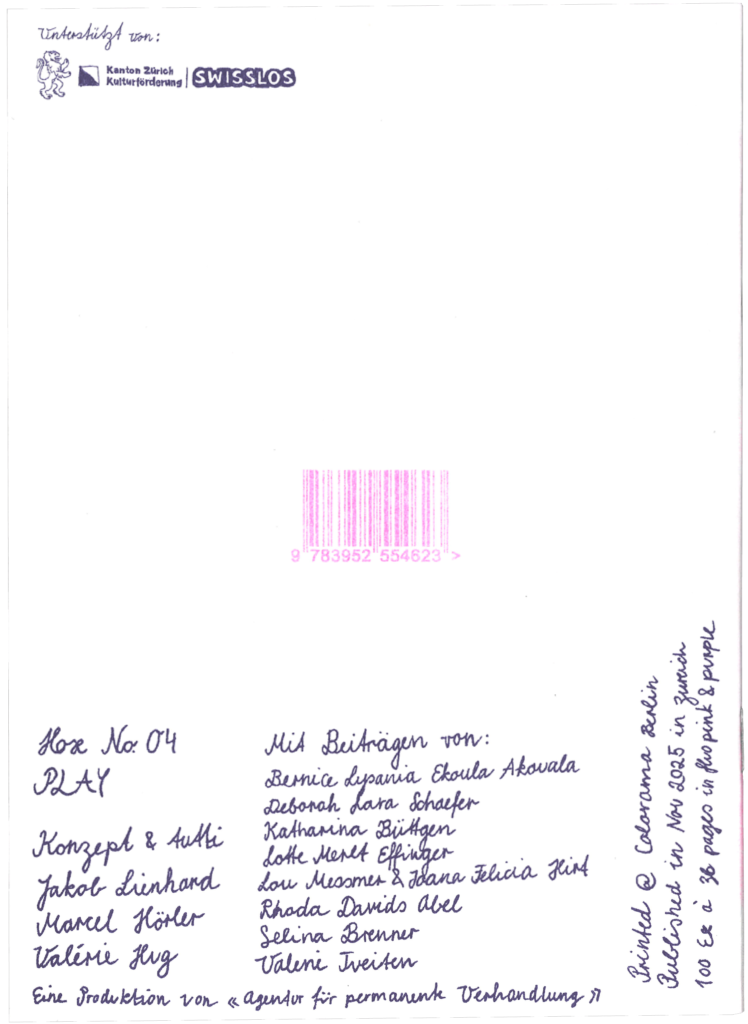 Unterstützt von:
Kanton Zürich
Kulturförderung
SWISSLOS
9 783952 554623 >
Hose No: 04
PLAY
Konzept & Tutti
Jakob Lienhard
Marcel Hörler
Valérie Hug
Mit Beiträgen von:
Bernice Lysania Ekoula Akouala
Deborah Lara Schaefer
Katharina Büttgen
Lotte Meret Effinger
Lou Messmer & Joana Felicia Hirt
Rhoda Davids Abel
Selina Brenner
Valerie Tveiten
Eine Produktion von « Agentur für permanente Verhandlung »
Printed @ Colorama Berlin
Published in Nov 2025 in Zureich
100 Ex à 36 pages in fluo pink & purple